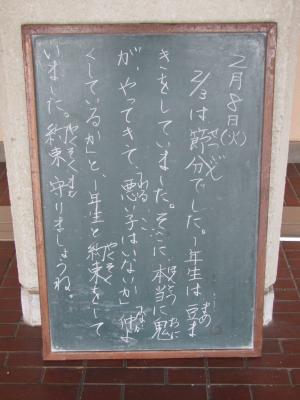 2月8日(火)
2/3は節分でした。1年生は豆ま
きをしていました。そこに、本当に鬼
が、やってきて、「悪い子はいないか」「仲よ
くしているか」と、1年生と約束をして
いました。約束守りましょうね。